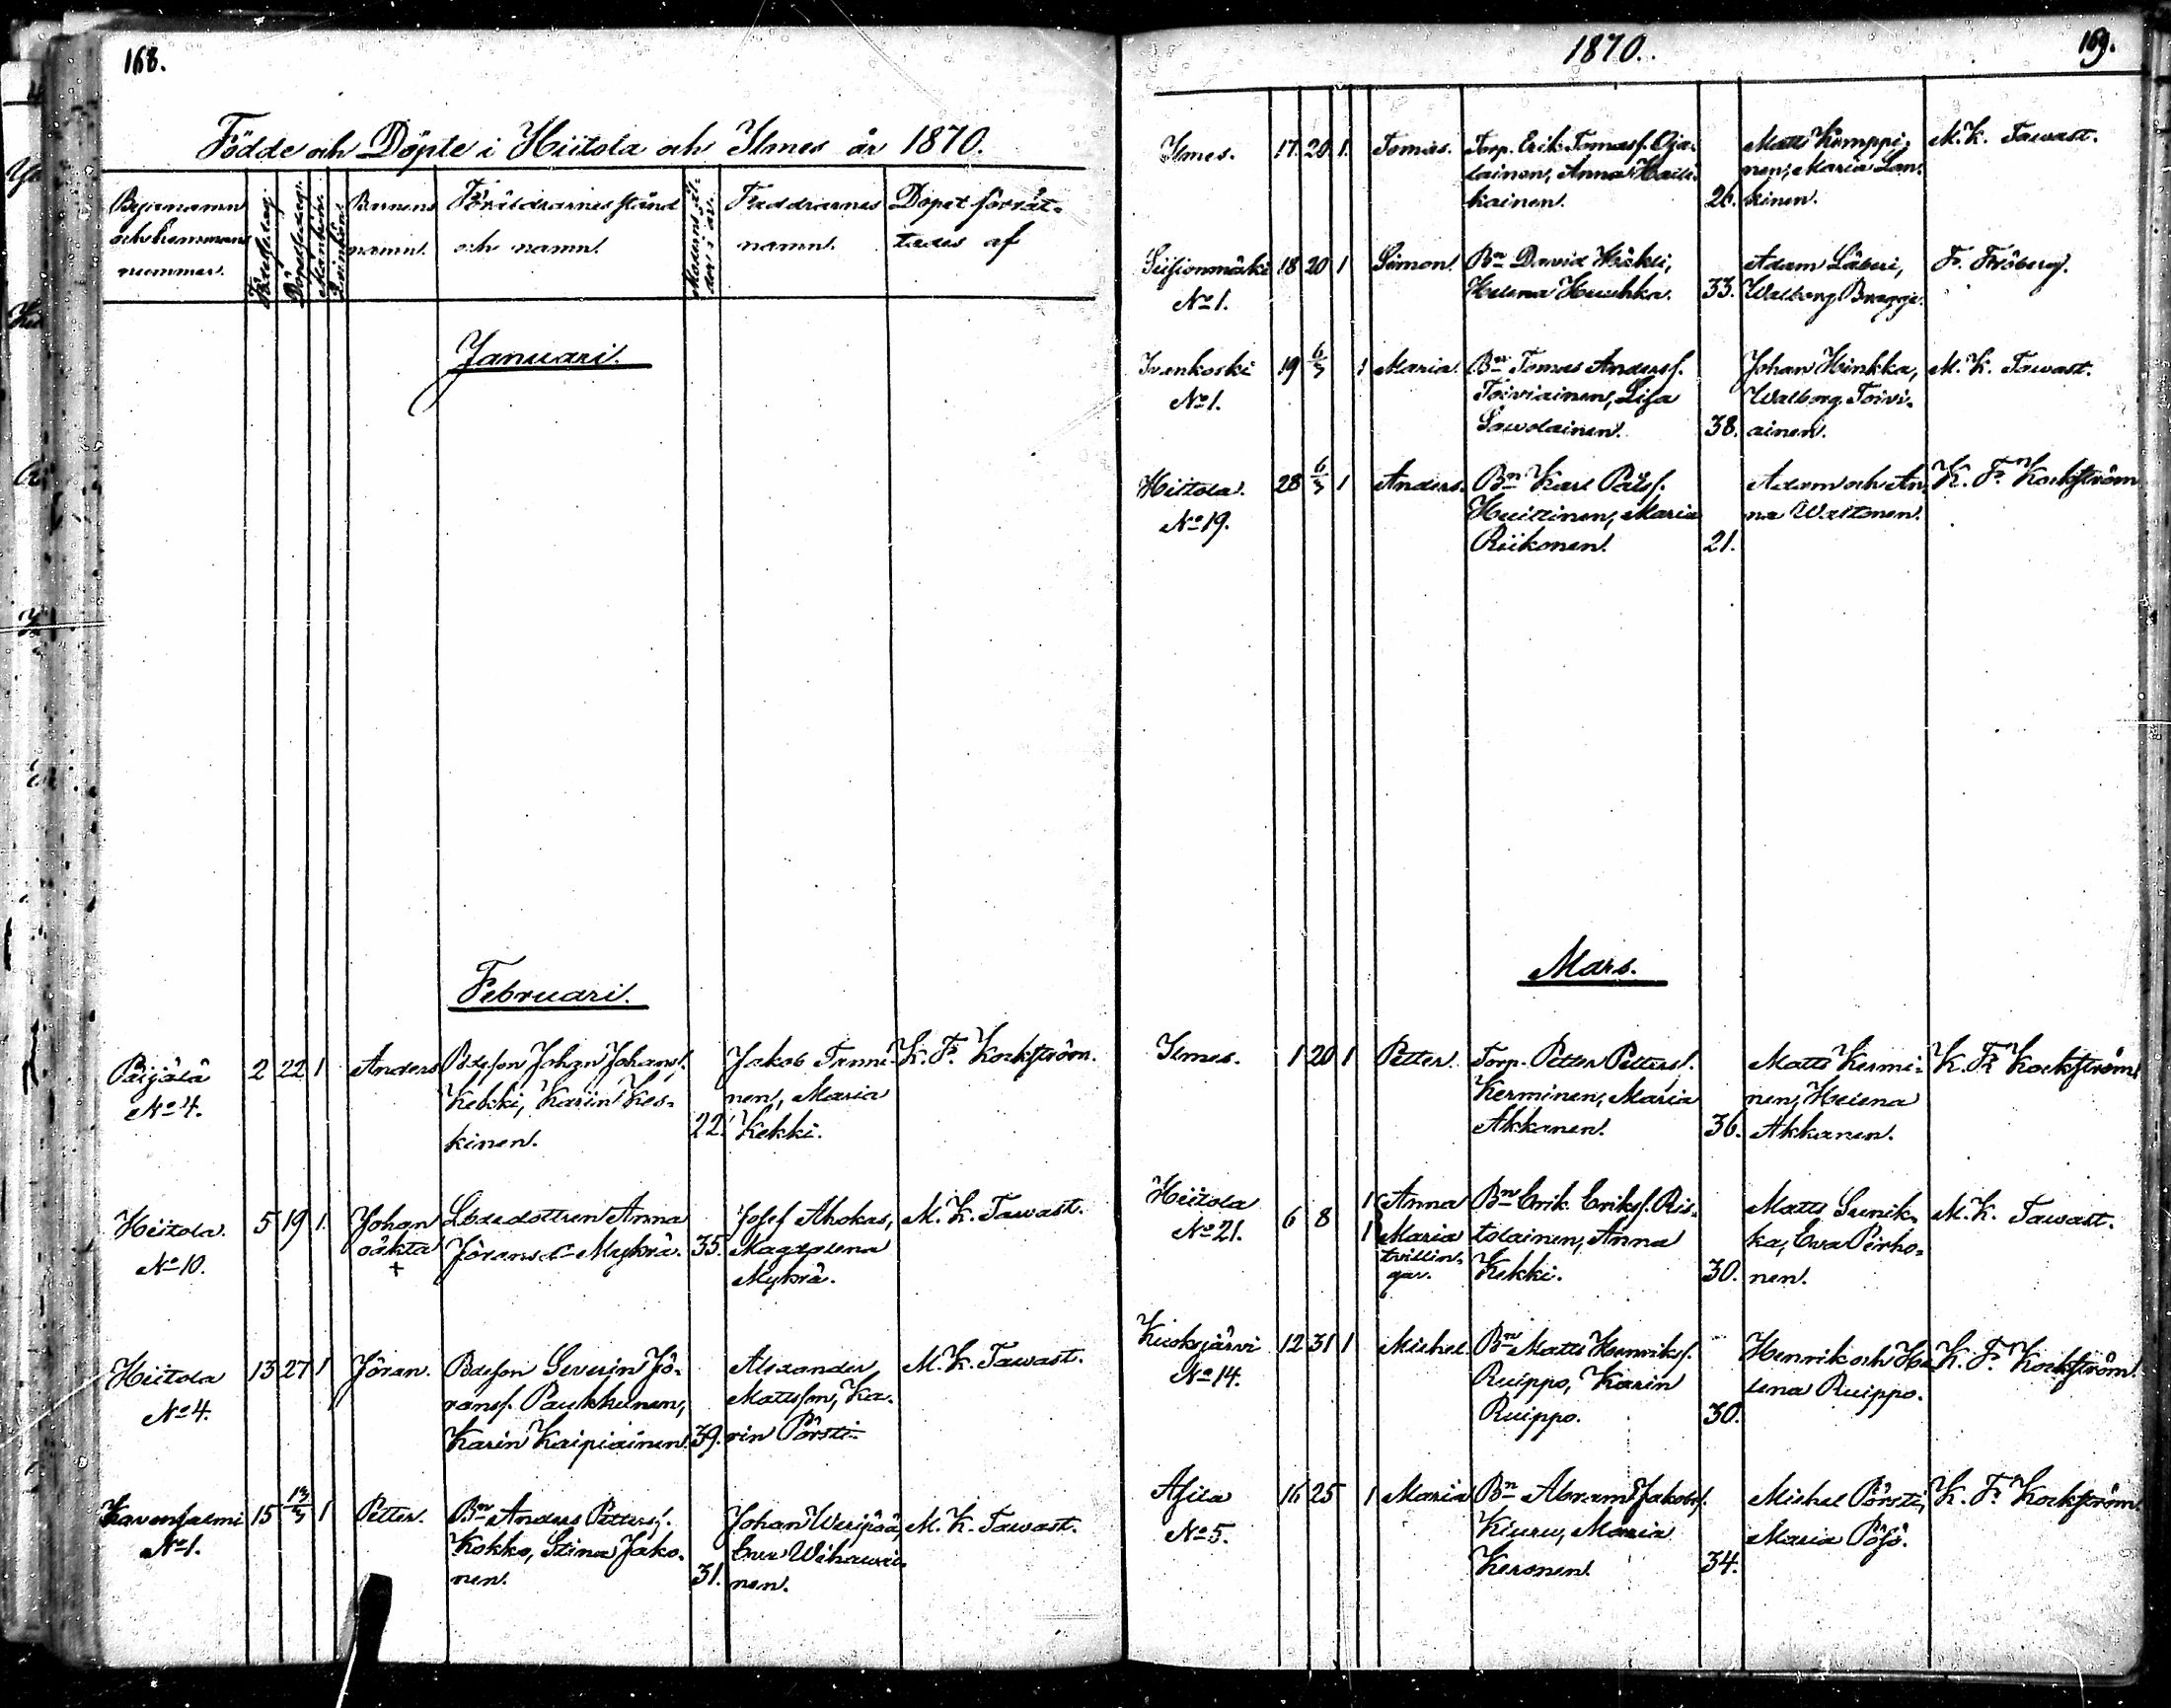 168.
Födde och Döpte i Hiitola och Ilmes år 1870.
Byjenamn
och hemmans
nummer.
Födelsedag.
Döpelsedag.
Mankön.
Qvinkön.
Barnens
namn.
Föräldrarnes stånd
och namn.
Moderns ål-
der i år.
Faddrarnes
namn.
Dopet förrät-
tades af
Januari.
Februari.
Päijälä
No 4.
2 22 1
Anders
Bdeson Johan Johansf.
Kekki, Karin Kes-
kinen.
22.
Jakob Tanni-
nen, Maria
Kekki.
K. F. Kockström.
Hiitola.
No 10.
5 19 1.
Johan
oäkta
+
Lösedottren Anna
Jöransdr Mykrä.
35.
Josef Ahokas,
Magdalena
Mykrä.
M. K. Tawast.
Hiitola
No 4.
13 27 1
Jöran.
Bdeson Severin Jö-
ransf. Paukkunen,
Karin Kaipiainen.
39.
Alexander
Mattsson, Ka-
rin Pörsti
M. K. Tawast.
Kavonsalmi
No 1.
15 13/3 1
Petter.
Bn Anders Pettersf.
Kokko, Stina Jako-
nen.
31.
Johan Weripää,
Eva Wihavai-
nen.
M. K. Tawast.
1870.
169.
Ilmes.
17. 20 1.
Tomas.
Torp. Erik Tomasf. Oja-
lainen, Anna Haili-
kainen.
26.
Matts Kämppi-
nen, Maria Lan-
kinen.
M. K. Tawast.
Siisionmäki
No 1.
18 20 1
Simon.
Bn David Häkli,
Helena Heuhka.
33.
Adam Läheri,
Walborg Bragge.
F. Fröberg.
Ivenkoski
No 1.
19 6/3 1
Maria.
Bn Tomas Andersf.
Toiviainen, Lisa
Sawolainen.
38.
Johan Hinkka,
Walborg Toivi-
ainen.
M. K. Tawast.
Hiitola.
No 19.
28 6/3 1
Anders.
Bn Karl Pålsf.
Huittinen, Maria
Riikonen.
21.
Adam och An-
na Waltonen.
K. F. Kockström
Mars.
Ilmes.
1 20 1
Petter.
Torp. Petter Pettersf.
Kerminen, Maria
Akkanen.
36.
Matts Kermi-
nen, Helena
Akkanen.
K. F. Kockström
Hiitola
No 21.
6 8
1 Anna
1 Maria
tvillin-
gar.
Bn Erik Eriksf. Ris-
tolainen, Anna
Kekki.
30.
Matts Sunik-
ka, Eva Pirho-
nen.
M. K. Tawast.
Kuoksjärvi
No 14.
12 31 1
Michel
Bn Matts Henriksf.
Ruippo, Karin
Ruippo.
30.
Henrik och He-
lena Ruippo.
K. F. Kockström.
Asila
No 5.
16 25 1
Maria
Bn Abram Jakobsf.
Kiuru, Maria
Keronen.
34.
Michel Pörsti,
Maria Pösö.
K. F. Kockström.